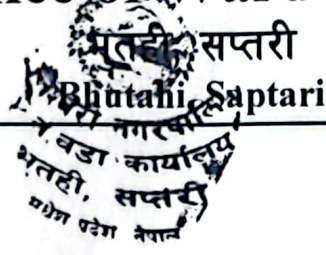 भुतही, सप्तरी
Bhutahi, Saptari
वडा कार्यालय
भुतही, सप्तरी
मधेश प्रदेश नेपाल